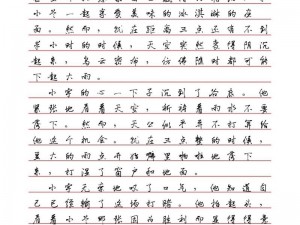 小芳一起享受美味的冰淇淋的夜
面。然而，就在距离三点还有不到
半小时的时候，天空突然变得阴沉
起来，乌云密布，仿佛随时都可能
下起大雨。
小李的心一下子沉到了谷底。他
紧张地看着天空，祈祷着雨水不要
落下。然而，天公似乎不打算给
他这个机会。就在三点整的时候，
豆大的雨点开始噼里啪啦地落下
来，打湿了窗户和地面。
小李无奈地叹了口气，他知道自
己已经输掉了这场打赌。他抬起头，
看着小芳那张因为胜利而显得得意